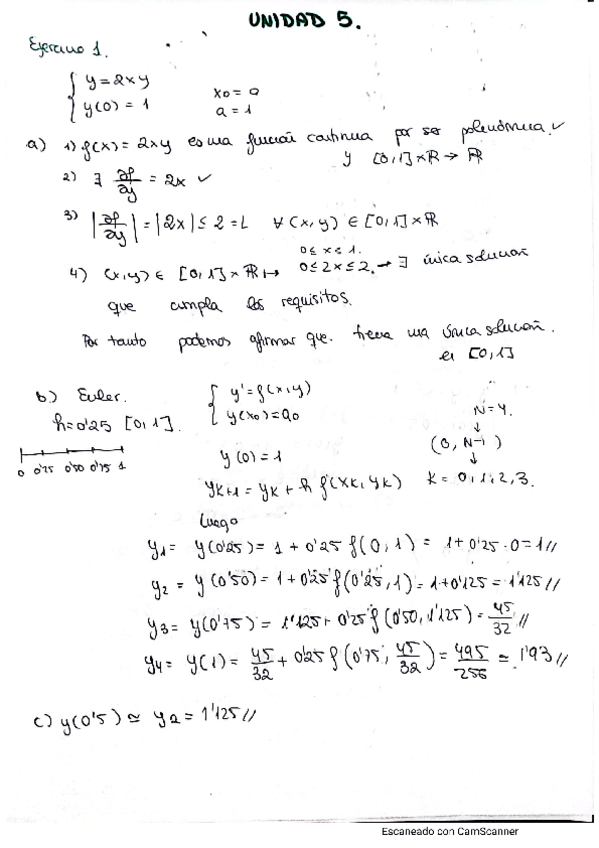 UNIDAD 5.
Ejercicio 1.
{ y = 2xy
y(0) = 1
x0 = 0
a = 1
a) 1) f(x) = 2xy es una función continua por ser polinómica. ✓
y [0,1] × ℝ → ℝ
2) ∃ ∂f/∂y = 2x ✓
3) |∂f/∂y| = |2x| ≤ 2 = L ∀(x,y) ∈ [0,1] × ℝ
4) (x,y) ∈ [0,1] × ℝ ↦ 0 ≤ x ≤ 1. 0 ≤ 2x ≤ 2. → ∃ única solución
que cumpla los requisitos.
Por tanto podemos afirmar que tiene una única solución.
en [0,1]
b) Euler.
h = 0'25 [0,1].
0 0'25 0'50 0'75 1
{ y' = f(x,y)
y(x0) = a0
N = 4.
↓
(0, N-1)
↓
y(0) = 1
yk+1 = yk + h f(xk, yk) k = 0, 1, 2, 3.
Luego
y1 = y(0'25) = 1 + 0'25 f(0,1) = 1 + 0'25 · 0 = 1 //
y2 = y(0'50) = 1 + 0'25 f(0'25, 1) = 1 + 0'125 = 1'125 //
y3 = y(0'75) = 1'125 + 0'25 f(0'50, 1'125) = 45/32 //
y4 = y(1) = 45/32 + 0'25 f(0'75, 45/32) = 495/256 ≃ 1'93 //
c) y(0'5) ≃ y2 = 1'125 //
Escaneado con CamScanner